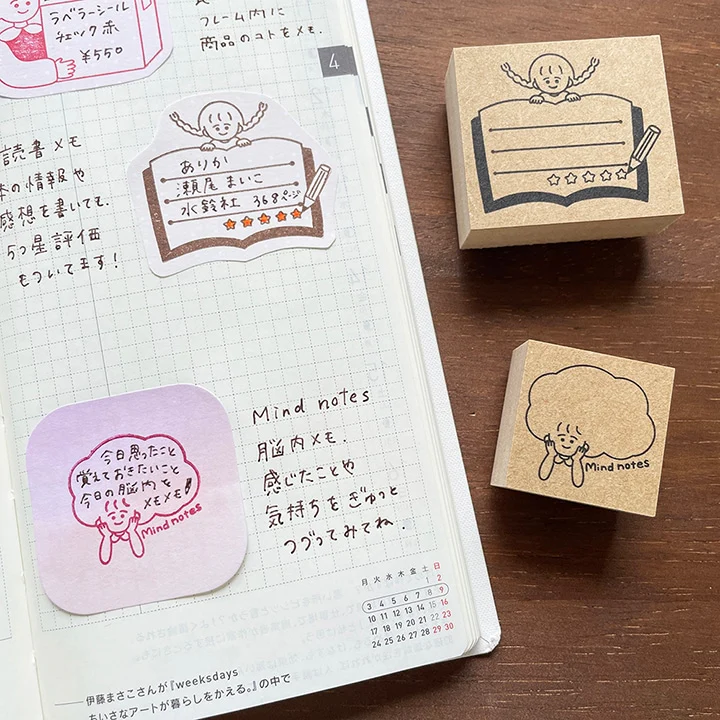 ラベラーシール
チェック赤
¥550
フレーム内に
商品のコトをメモ.
4
読書メモ
本の情報や
感想を書いても.
5つ星評価
もついてます!
ありか
瀬尾まいこ
水鈴社 368ページ
今日思ったこと
覚えておきたいこと
今日の脳内を
メモメモ!
Mind notes
Mind notes
脳内メモ.
感じたことや
気持ちをぎゅっと
つづってみてね.
Mind notes
月 火 水 木 金 土 日
1 2
3 4 5 6 7 8 9
10 11 12 13 14 15 16
17 18 19 20 21 22 23
24 25 26 27 28 29 30
伊藤まさこさんが『weeksdays
ちいさなアートが暮らしをかえる。』の中で